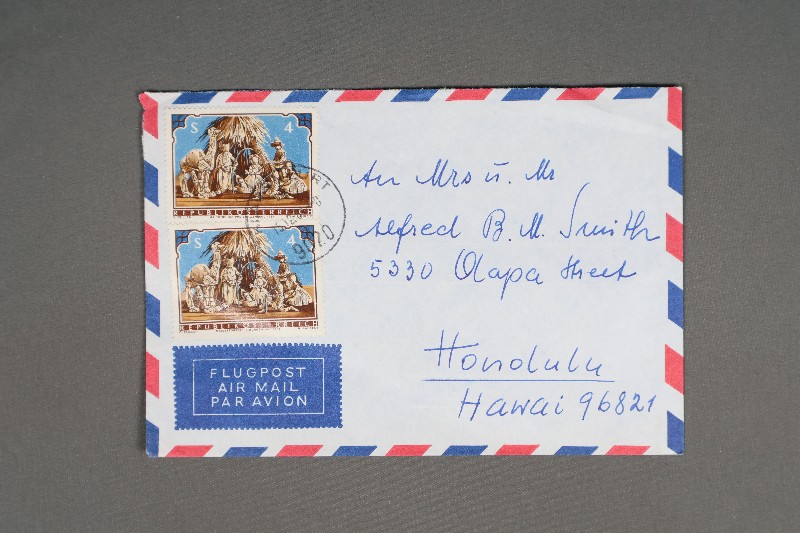 S 4
REPUBLIK ÖSTERREICH
9020
S 4
REPUBLIK ÖSTERREICH
FLUGPOST
AIR MAIL
PAR AVION
An Mrs u. Mr
Alfred B. M. Smith
5330 Olapa Street
Honolulu
Hawai 96821